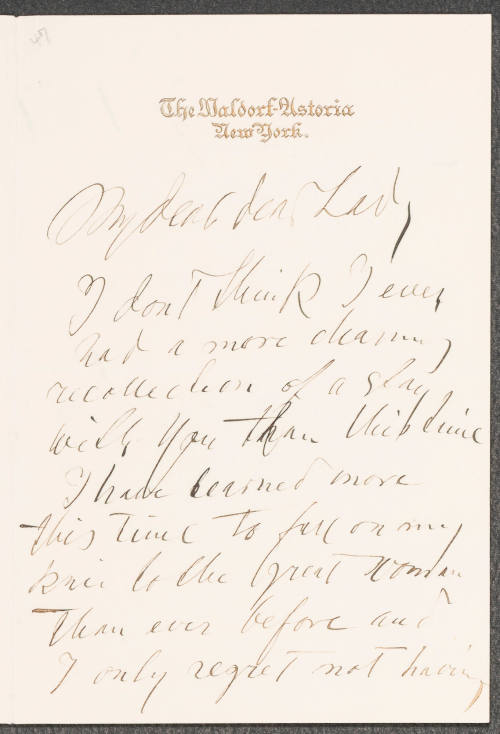 The Waldorf-Astoria
New York.
My dear dear Lady
I don't think I ever
had a more charming
recollection of a stay
with you than this time
I have learned more
this time to fall on my
knee to the great woman
than ever before and
I only regret not having